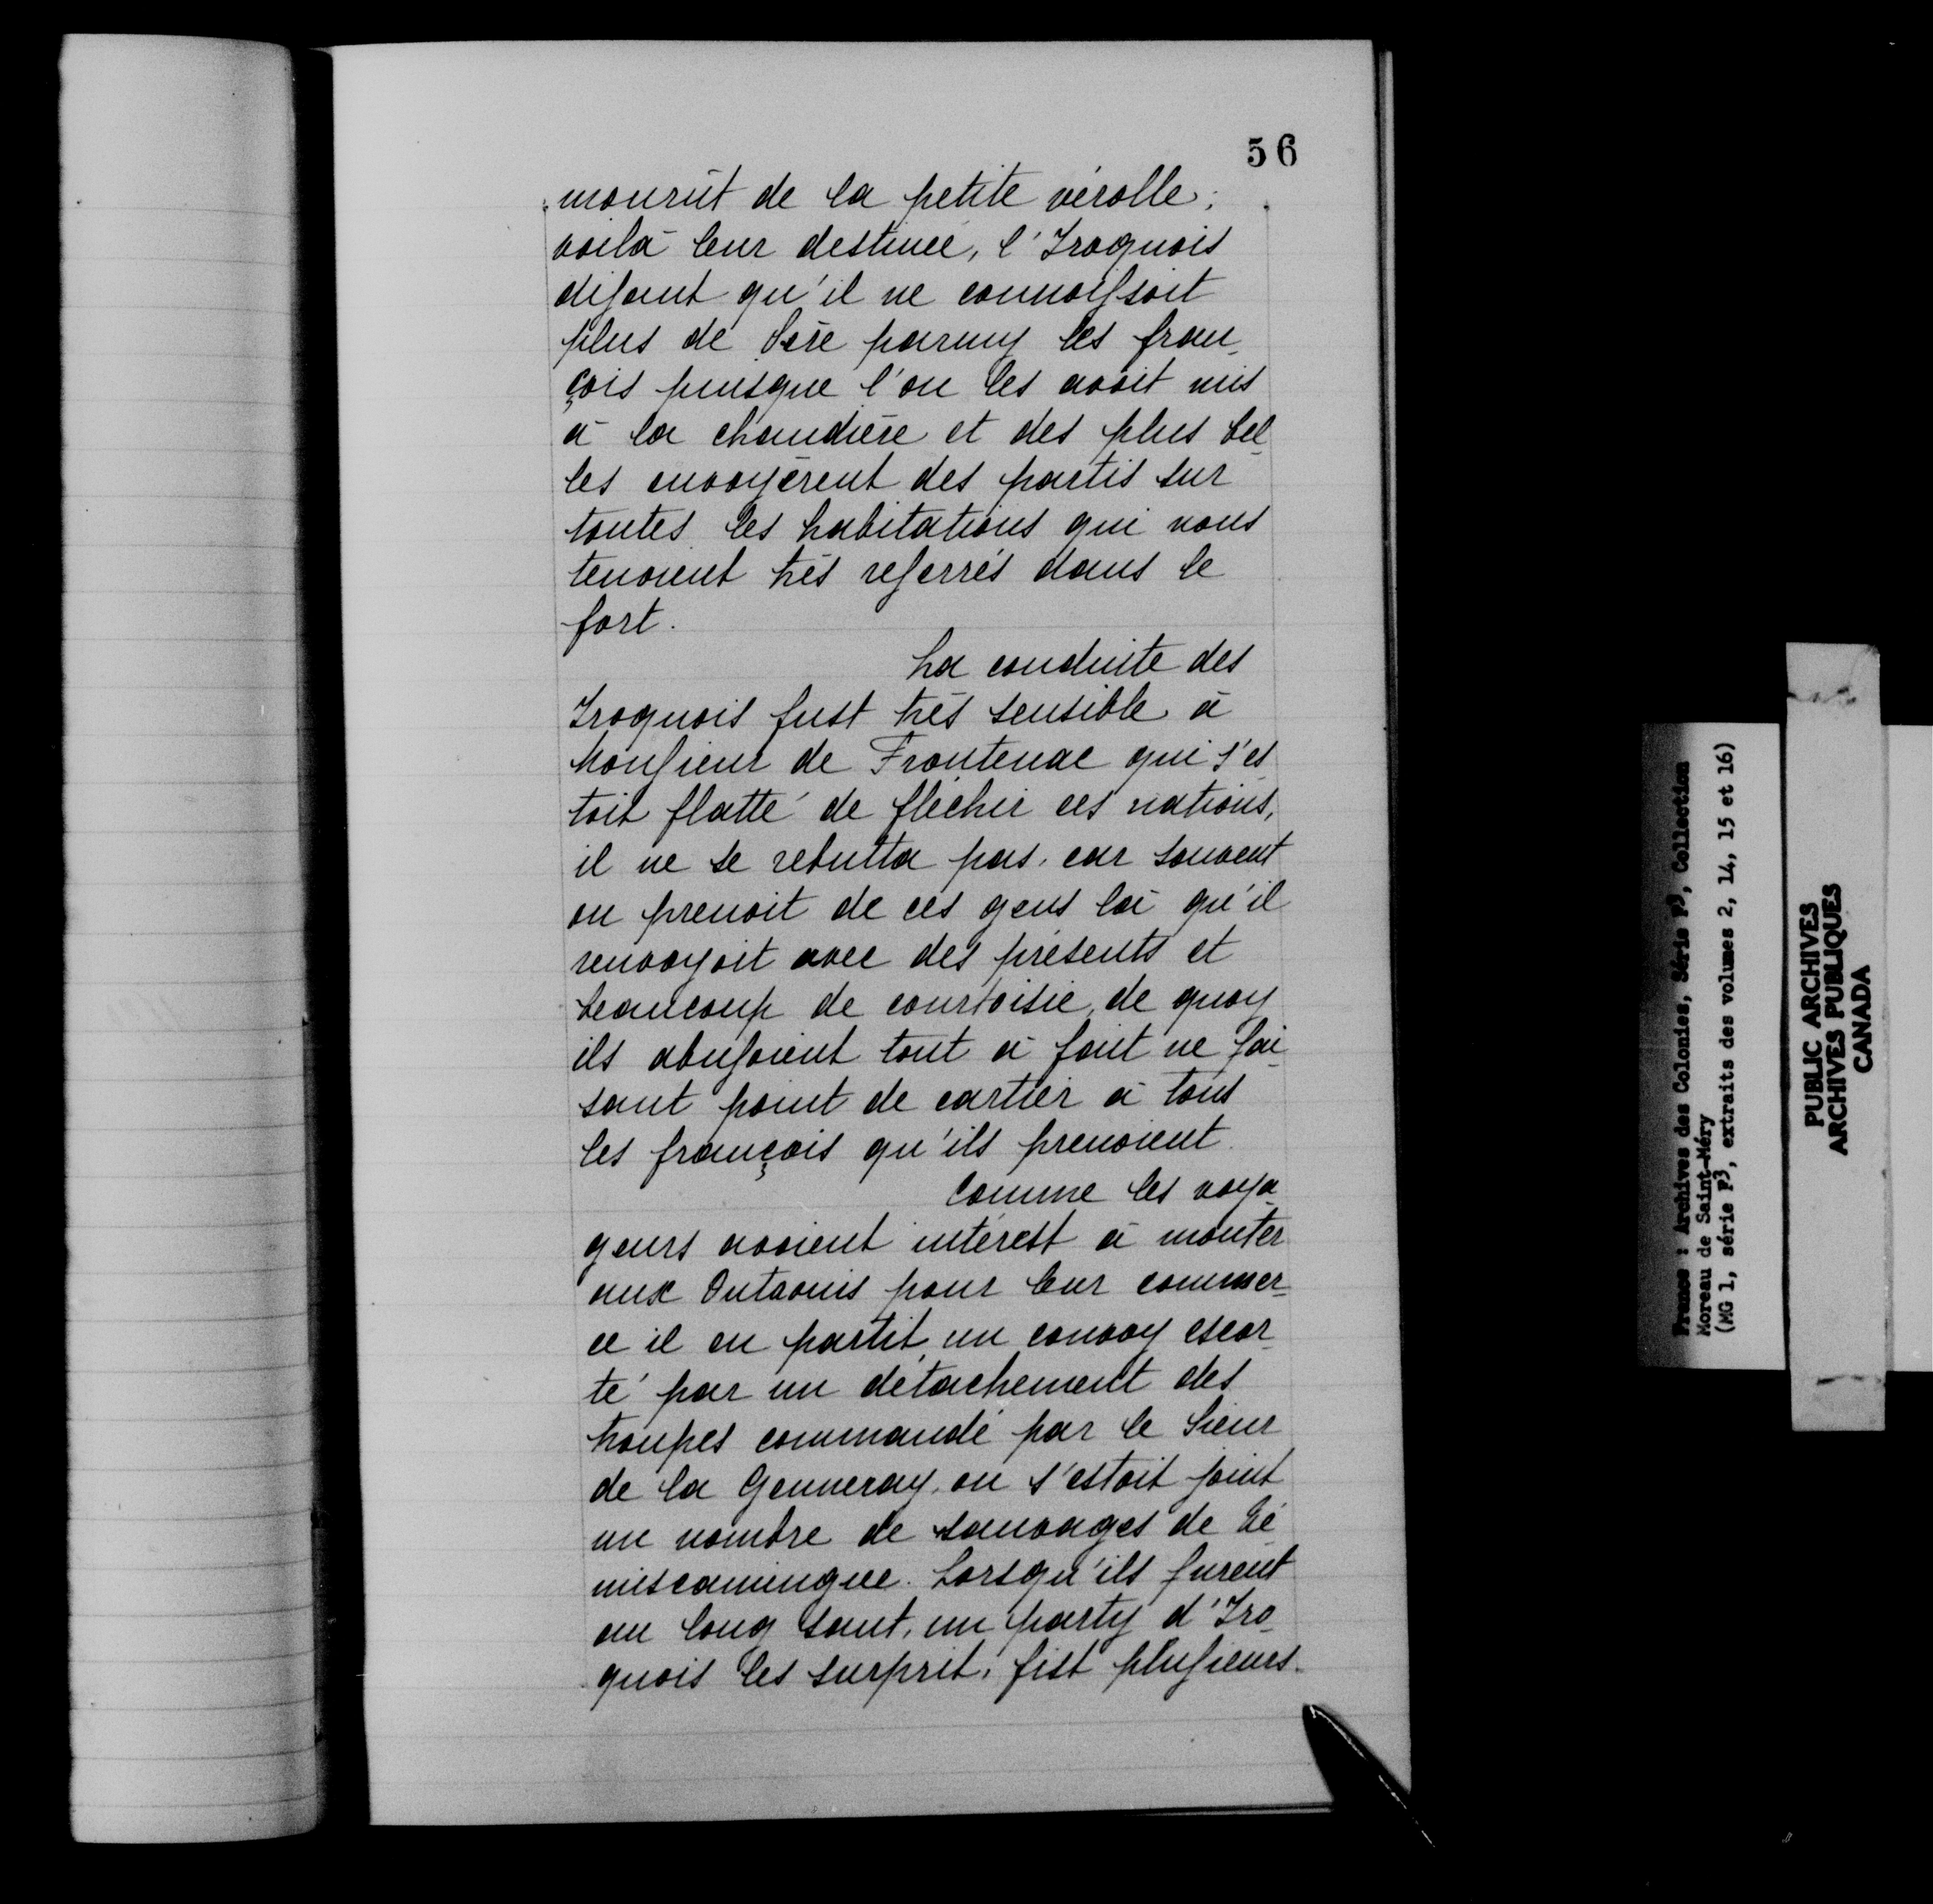 56
mourût de la petite vérolle;
voilà leur destinée, l'Iroquois
disant qu'il ne connoissoit
plus de Père parmy les fran-
çois puisque l'on les avoit mis
à la chaudière et des plus bel-
les envoyèrent des partis sur
toutes les habitations qui nous
tenoient très reserrés dans le
fort.
La conduite des
Iroquois fust très sensible à
Monsieur de Frontenac qui s'es-
toit flatté de fléchir ces nations,
il ne se rebutta pas, car souvent
on prenoit de ces gens là qu'il
renvoyoit avec des présents et
beaucoup de courtoisie, de quoy
ils abusoient tout à fait ne fai-
sant point de cartier à tous
les françois qu'ils prenoient.
Comme les voya-
geurs avoient intérest à monter
aux Outaouis pour leur commer-
ce il en partit un convoy escor-
té par un détachement des
troupes commandé par le Sieur
de la Genneray, on s'estoit joint
un nombre de sauvages de Té-
miscamingue. Lorsqu'ils furent
au long saut, un party d'Iro-
quois les surprit, fist plusieurs
France : Archives des Colonies, Série F3, Collection
Moreau de Saint-Méry
(MG 1, série F3, extraits des volumes 2, 14, 15 et 16)
PUBLIC ARCHIVES
ARCHIVES PUBLIQUES
CANADA